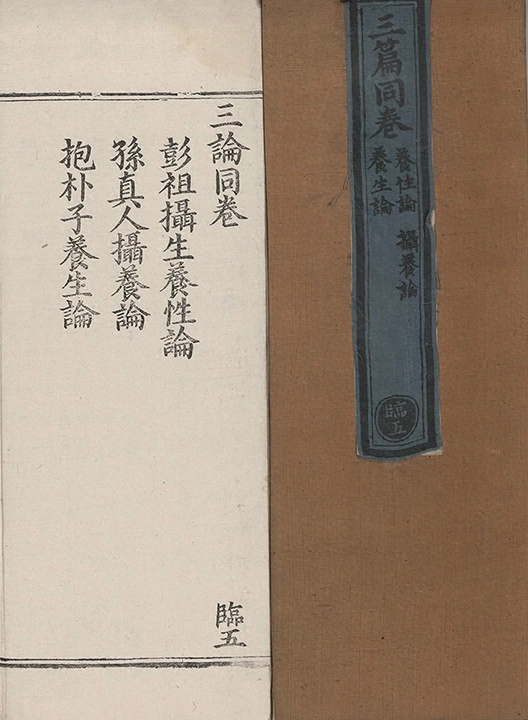 三篇同卷
養性論 攝養論
養生論
臨五
三論同卷
臨五
彭祖攝生養性論
孫真人攝養論
抱朴子養生論